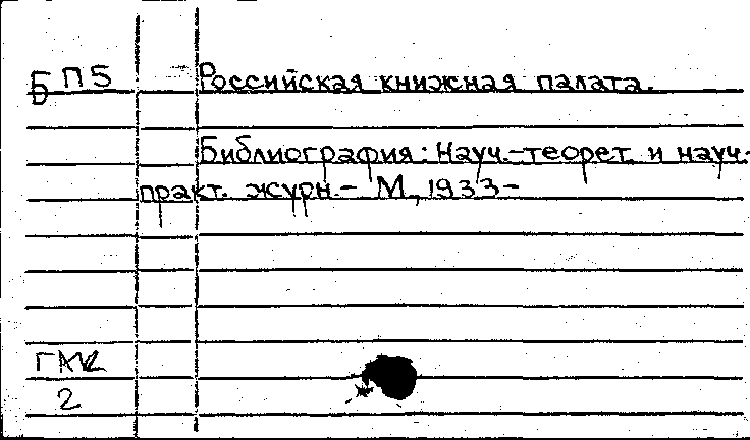 Б П5 Российская книжная палата.
Библиография: Науч.-теорет. и науч.-
практ. журн.- М., 1933-
2